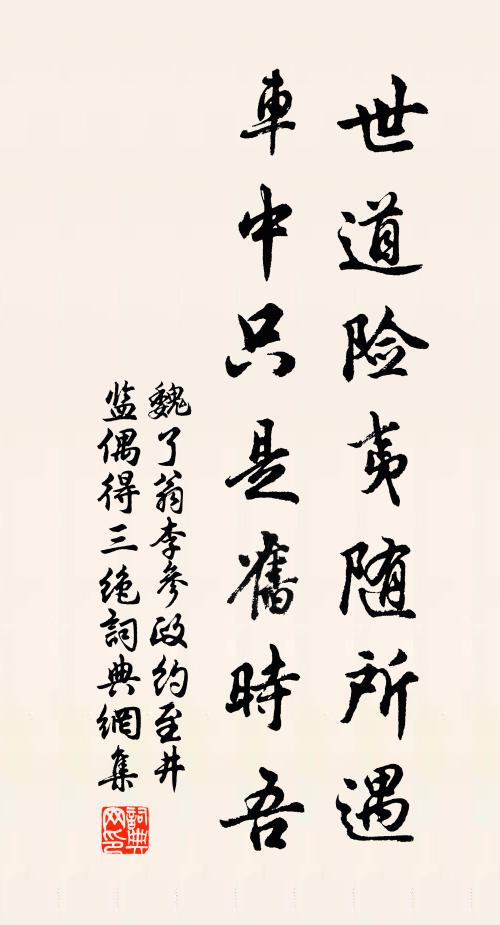 世道险夷随所遇
車中只是舊時吾
魏了翁李參政约至井
监偶得三绝詞典網集
詞典網印